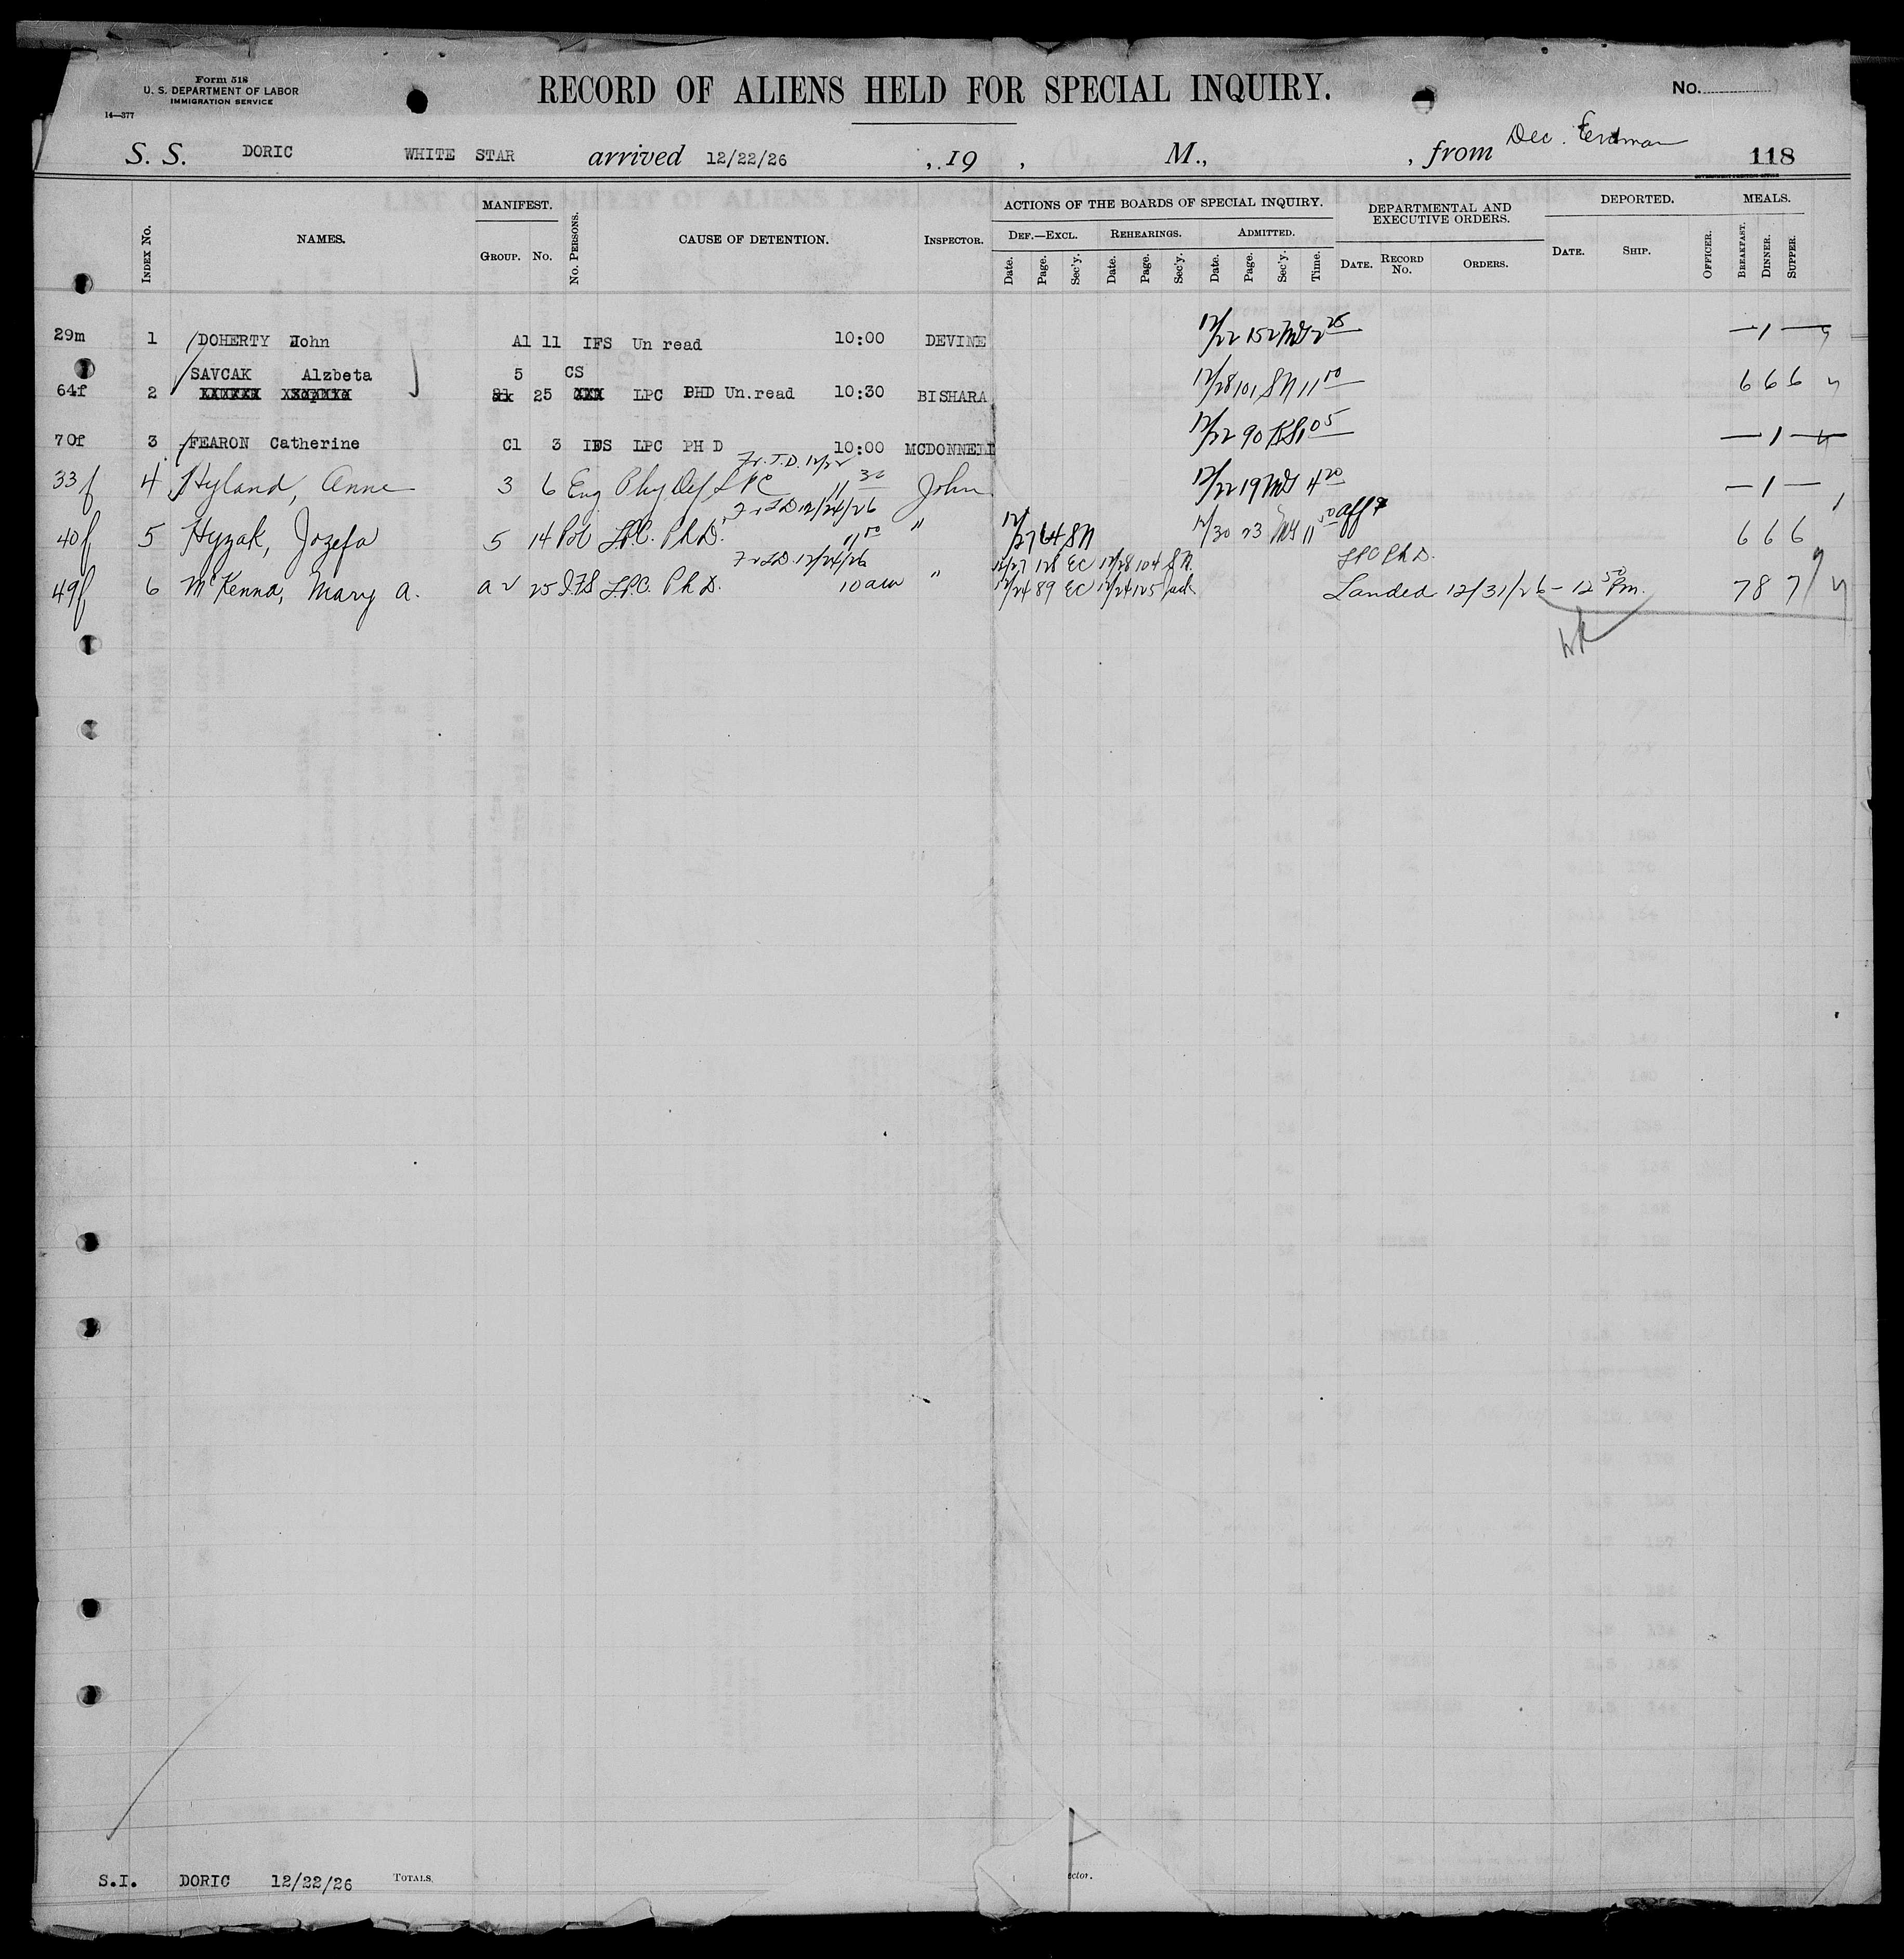 Form 518
U. S. DEPARTMENT OF LABOR
IMMIGRATION SERVICE
14—377
RECORD OF ALIENS HELD FOR SPECIAL INQUIRY.
No.
S. S. DORIC WHITE STAR arrived 12/22/26 , 19 , M., , from Dec. Erdman 118
INDEX No. NAMES. MANIFEST. GROUP. No. No. PERSONS. CAUSE OF DETENTION. INSPECTOR. ACTIONS OF THE BOARDS OF SPECIAL INQUIRY. DEPARTMENTAL AND EXECUTIVE ORDERS. DEPORTED. MEALS.
DEF.—EXCL. REHEARINGS. ADMITTED.
Date. Page. Sec'y. Date. Page. Sec'y. Date. Page. Sec'y. Time. DATE. RECORD No. ORDERS. DATE. SHIP. OFFICER. BREAKFAST. DINNER. SUPPER.
29m 1 DOHERTY John A1 11 IFS Un read 10:00 DEVINE 12/22 152 MS 2 25 — 1 —
SAVCAK Alzbeta 5 CS
64f 2 25 LPC PHD Un.read 10:30 BISHARA 12/28 101 SN 11 00 6 6 6
70f 3 FEARON Catherine C1 3 IFS LPC PH D 10:00 MCDONNELL 12/22 90 1 05 — 1 —
Fr. T.D. 12/22
33f 4 Hyland, Anne 3 6 Eng Phy Def LPC 11 30 John 12/22 19 MS 4 20 — 1 —
Fr TD 12/24/26
40f 5 Hyzak, Jozefa 5 14 Pol LPC. Ph D. 11 00 " 12/27 64 SN 12/30 23 MS 11 50 aff 6 6 6
Fr TD. 12/24/26 12/27 128 EC 12/28 104 S N. LPC Ph D.
49f 6 McKenna, Mary A. A 2 25 IFS LPC. Ph D. 10 am " 12/24 89 EC 12/24 125 Landed 12/31/26 - 12 50 Pm. 7 8 7
S.I. DORIC 12/22/26 TOTALS,
ector.